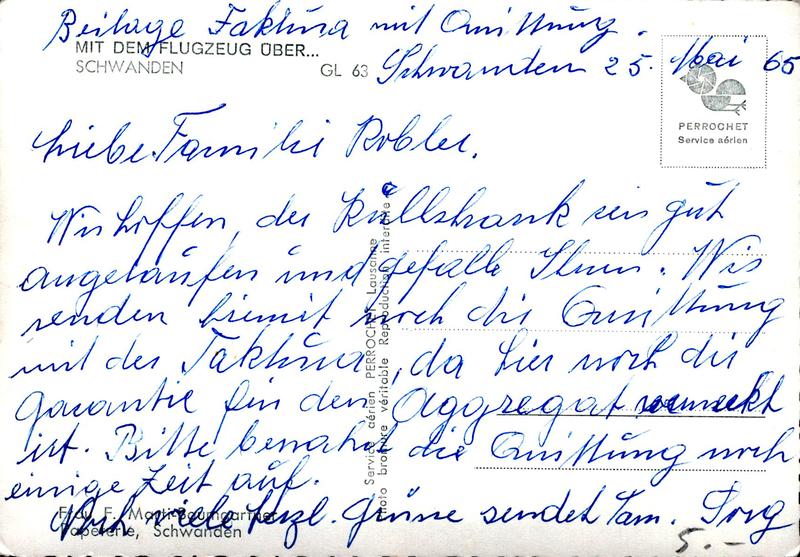 Beilage Faktura mit Quittung.
MIT DEM FLUGZEUG ÜBER...
SCHWANDEN
GL 63
Schwanden 25. Mai 65
PERROCHET
Service aérien
Liebe Familie Kobler.
Wir hoffen, der Kühlshrank sei gut
angelaufen und gefalle Ihnen. Wir
senden hiemit noch die Quittung
mit der Faktura, da hier noch die
Garantie für den Aggregat vermerkt
ist. Bitte bewahrt die Quittung noch
einige Zeit auf.
viele herzl. Grüsse sendet Fam.
Service aérien PERROCHET Lausanne
Photo véritable Reproduction interdite
Frau F. Marti-Baumgartner
Papeterie, Schwanden
5.-